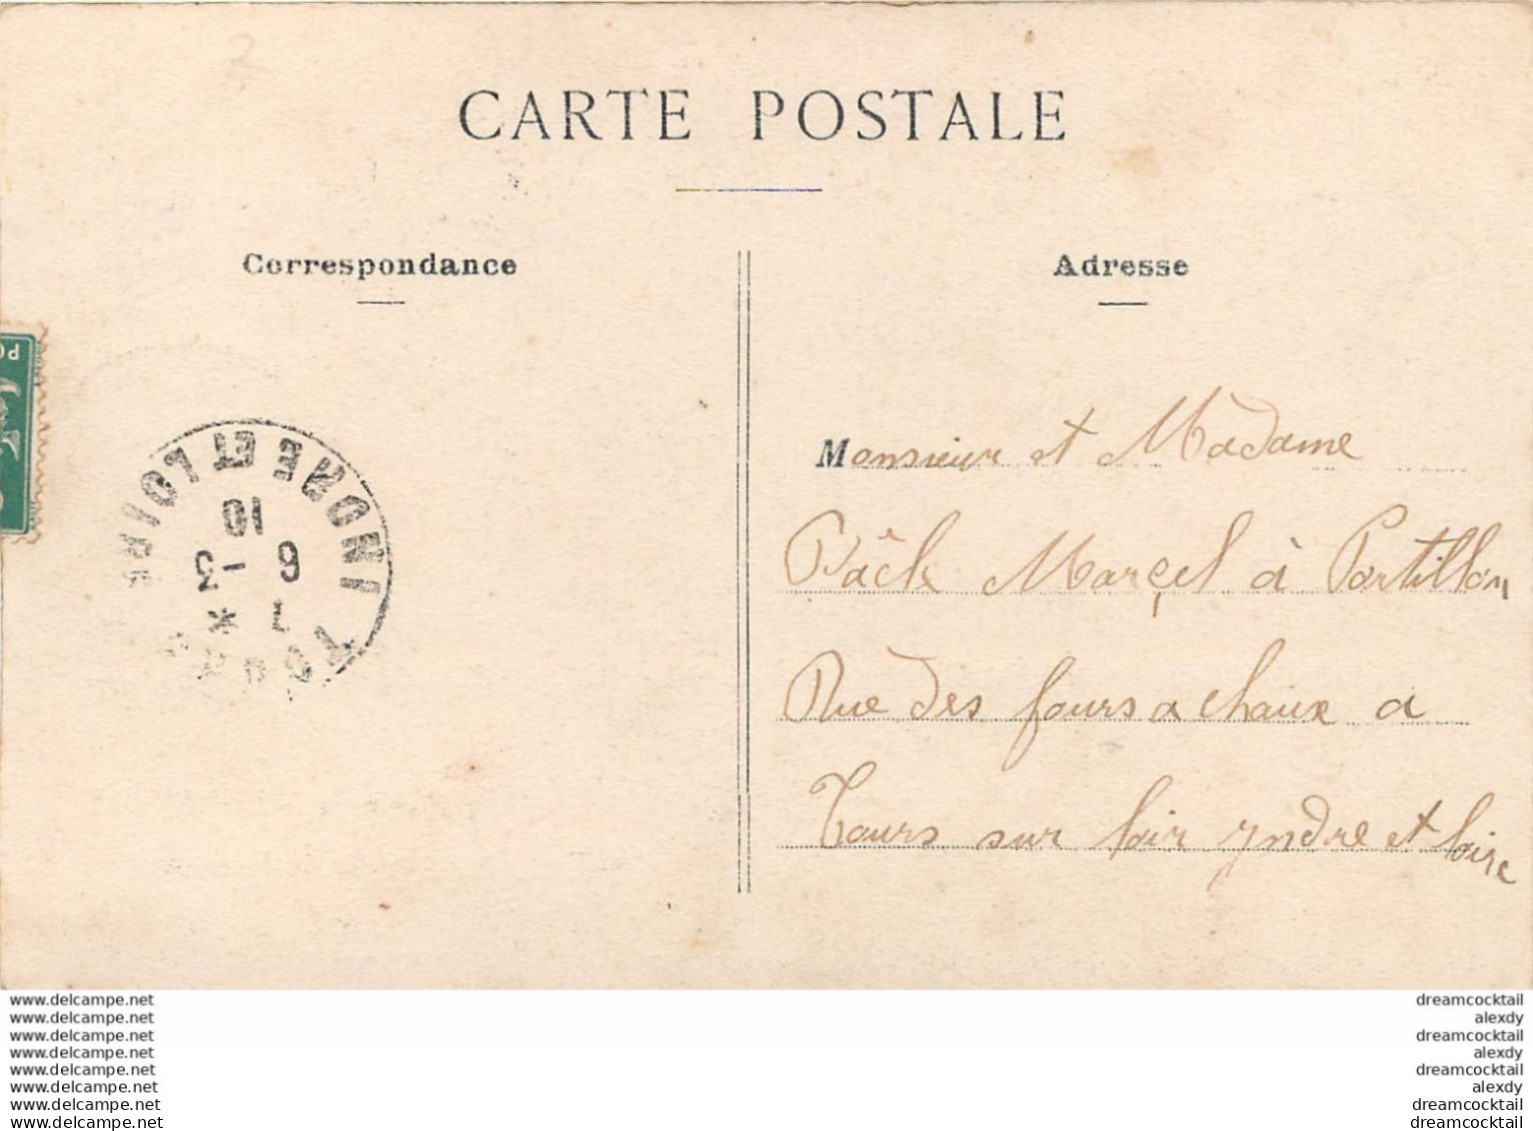 CARTE POSTALE
Correspondance
Adresse
PO
TOURS
INDRE ET LOIRE
1 *
6 -3
10
Monsieur et Madame
Marçel à Portillon
Rue des fours a chaux a
Tours sur loir yndre et loire
www.delcampe.net
www.delcampe.net
www.delcampe.net
www.delcampe.net
www.delcampe.net
www.delcampe.net
www.delcampe.net
www.delcampe.net
dreamcocktail
alexdy
dreamcocktail
alexdy
dreamcocktail
alexdy
dreamcocktail
dreamcocktail